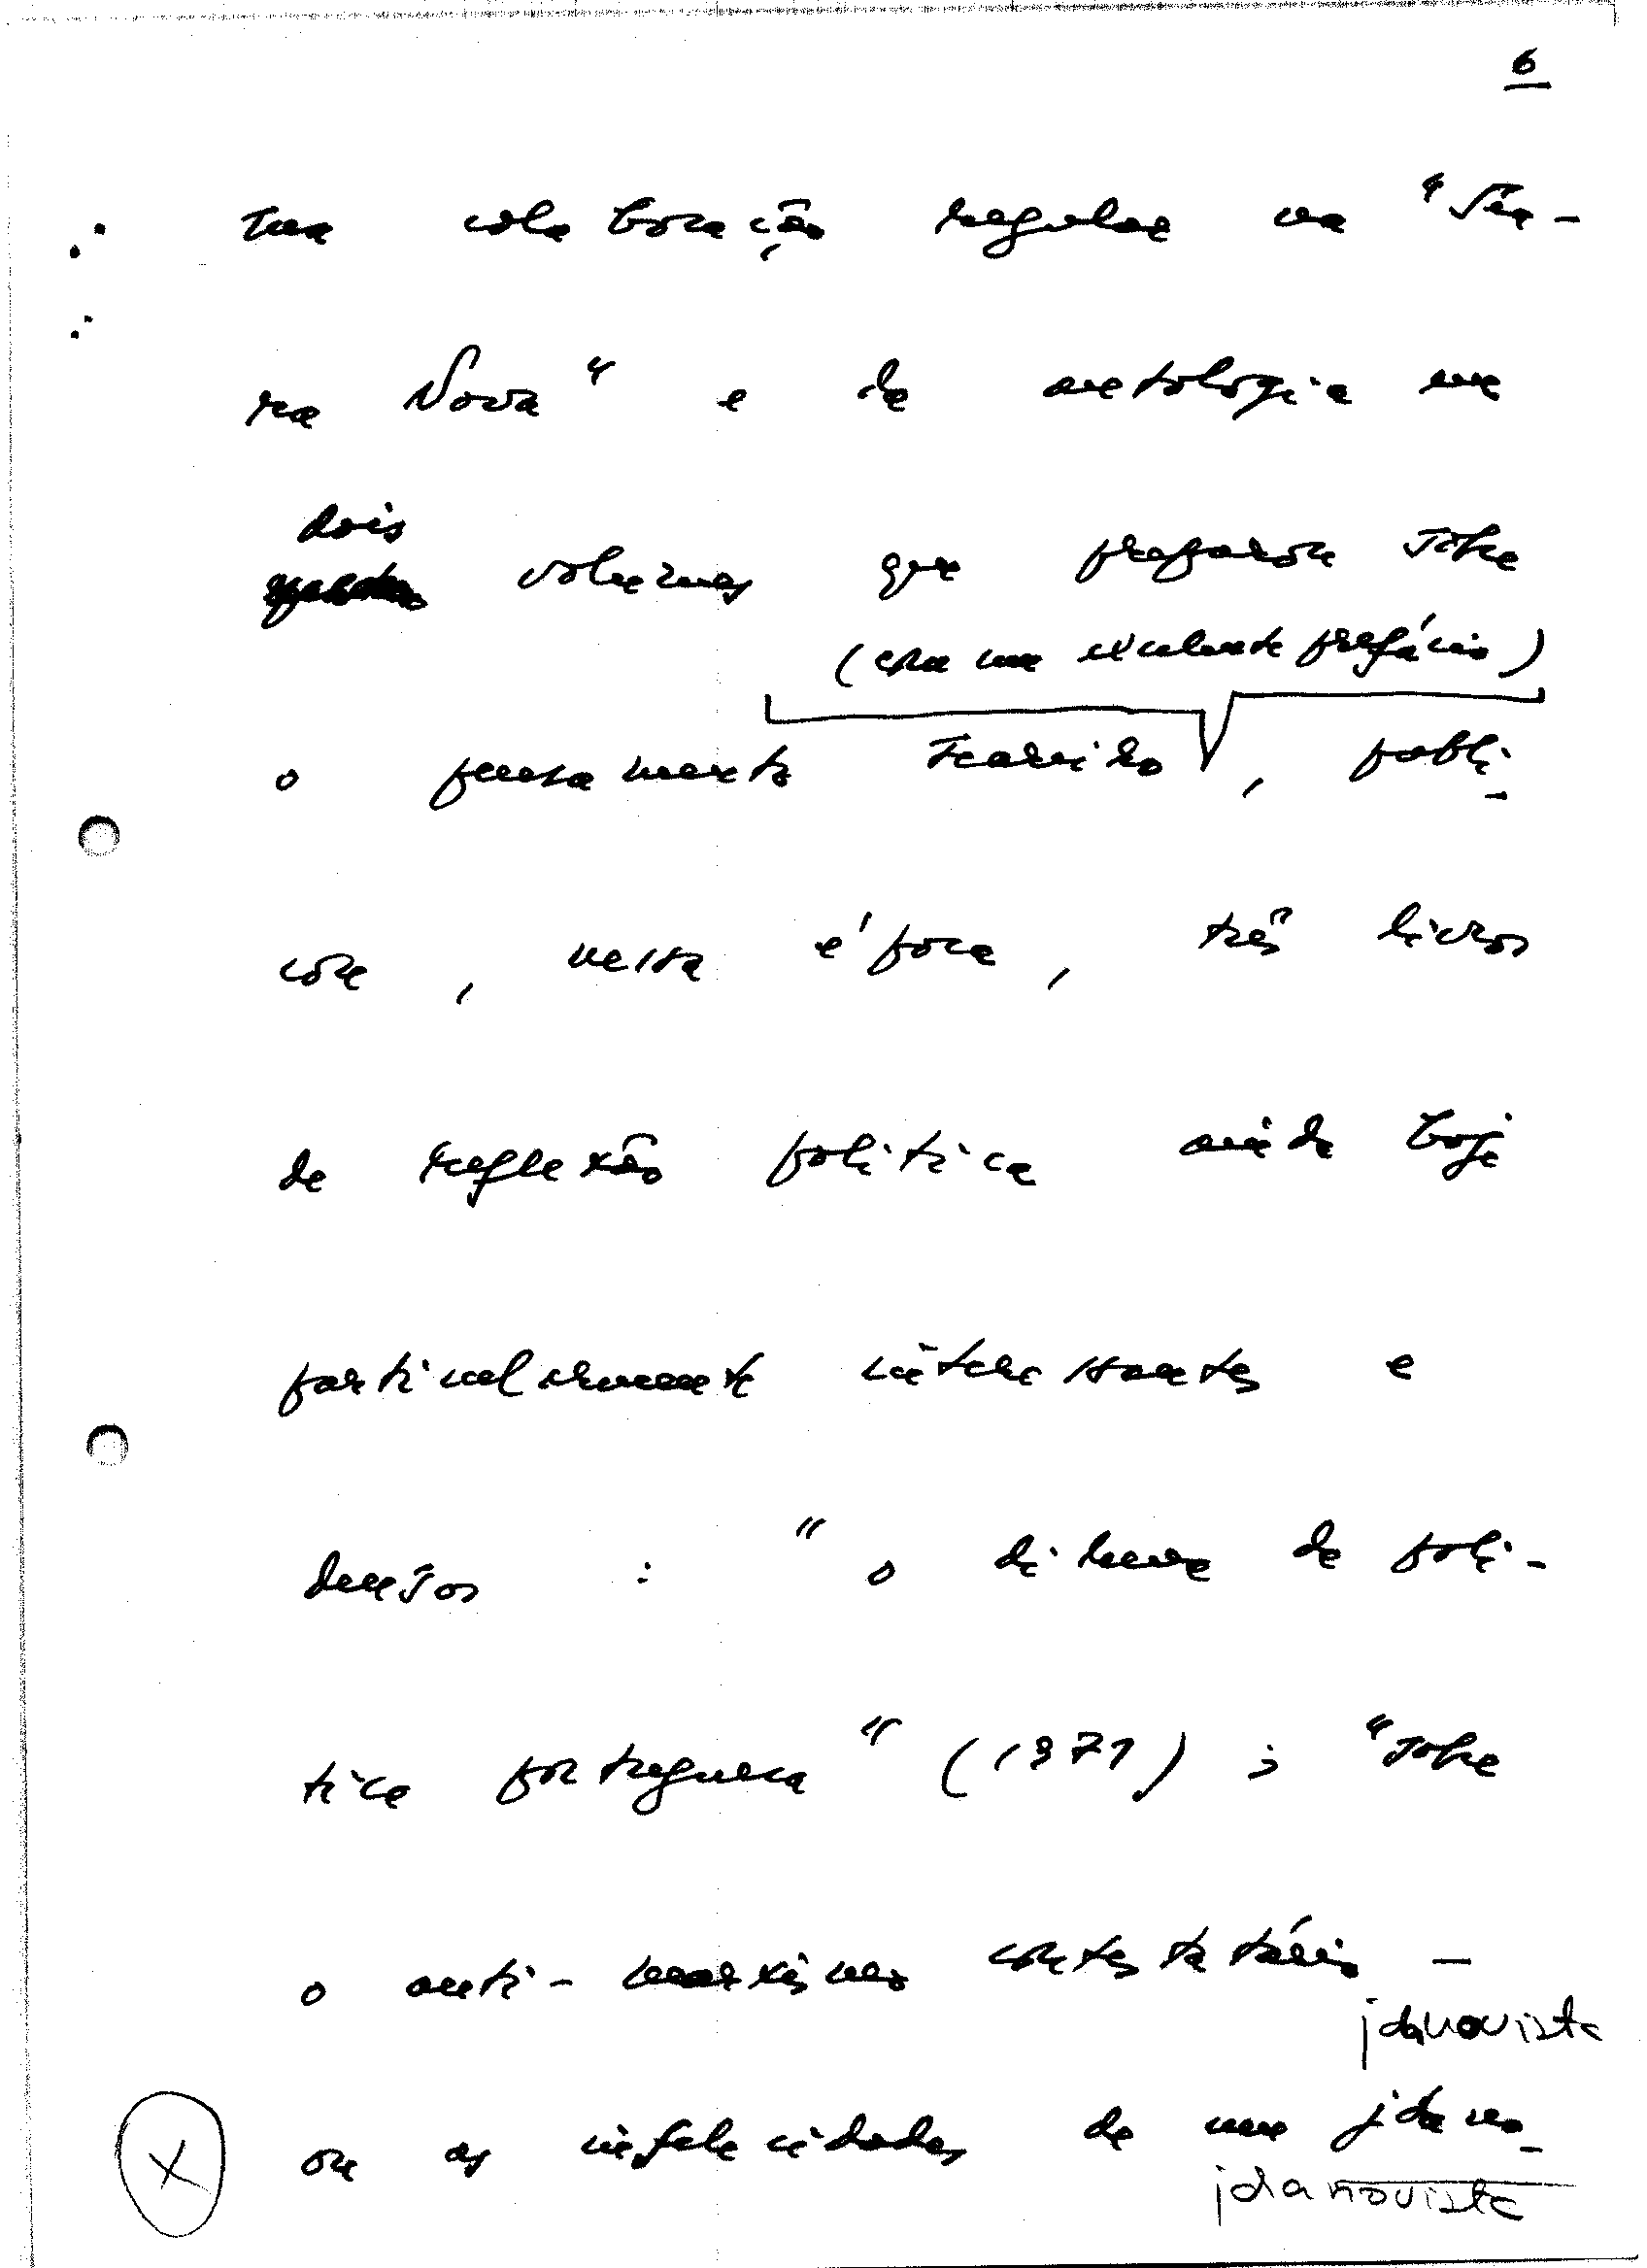 6
sua colaboração regular na "Sea-
ra Nova" e da antologia em
dois
volumes que preparou sobre
(com um excelente prefácio)
o pensamento , publi-
cou, nessa época, três livros
de reflexão política ainda hoje
particularmente interessantes e
densos : "o dilema da polí-
tica portuguesa" (1971) ; "sobre
o anti-marxismo contestatário –
jdanovista
ou as infelicidades de um jdano-
jdanovista
X